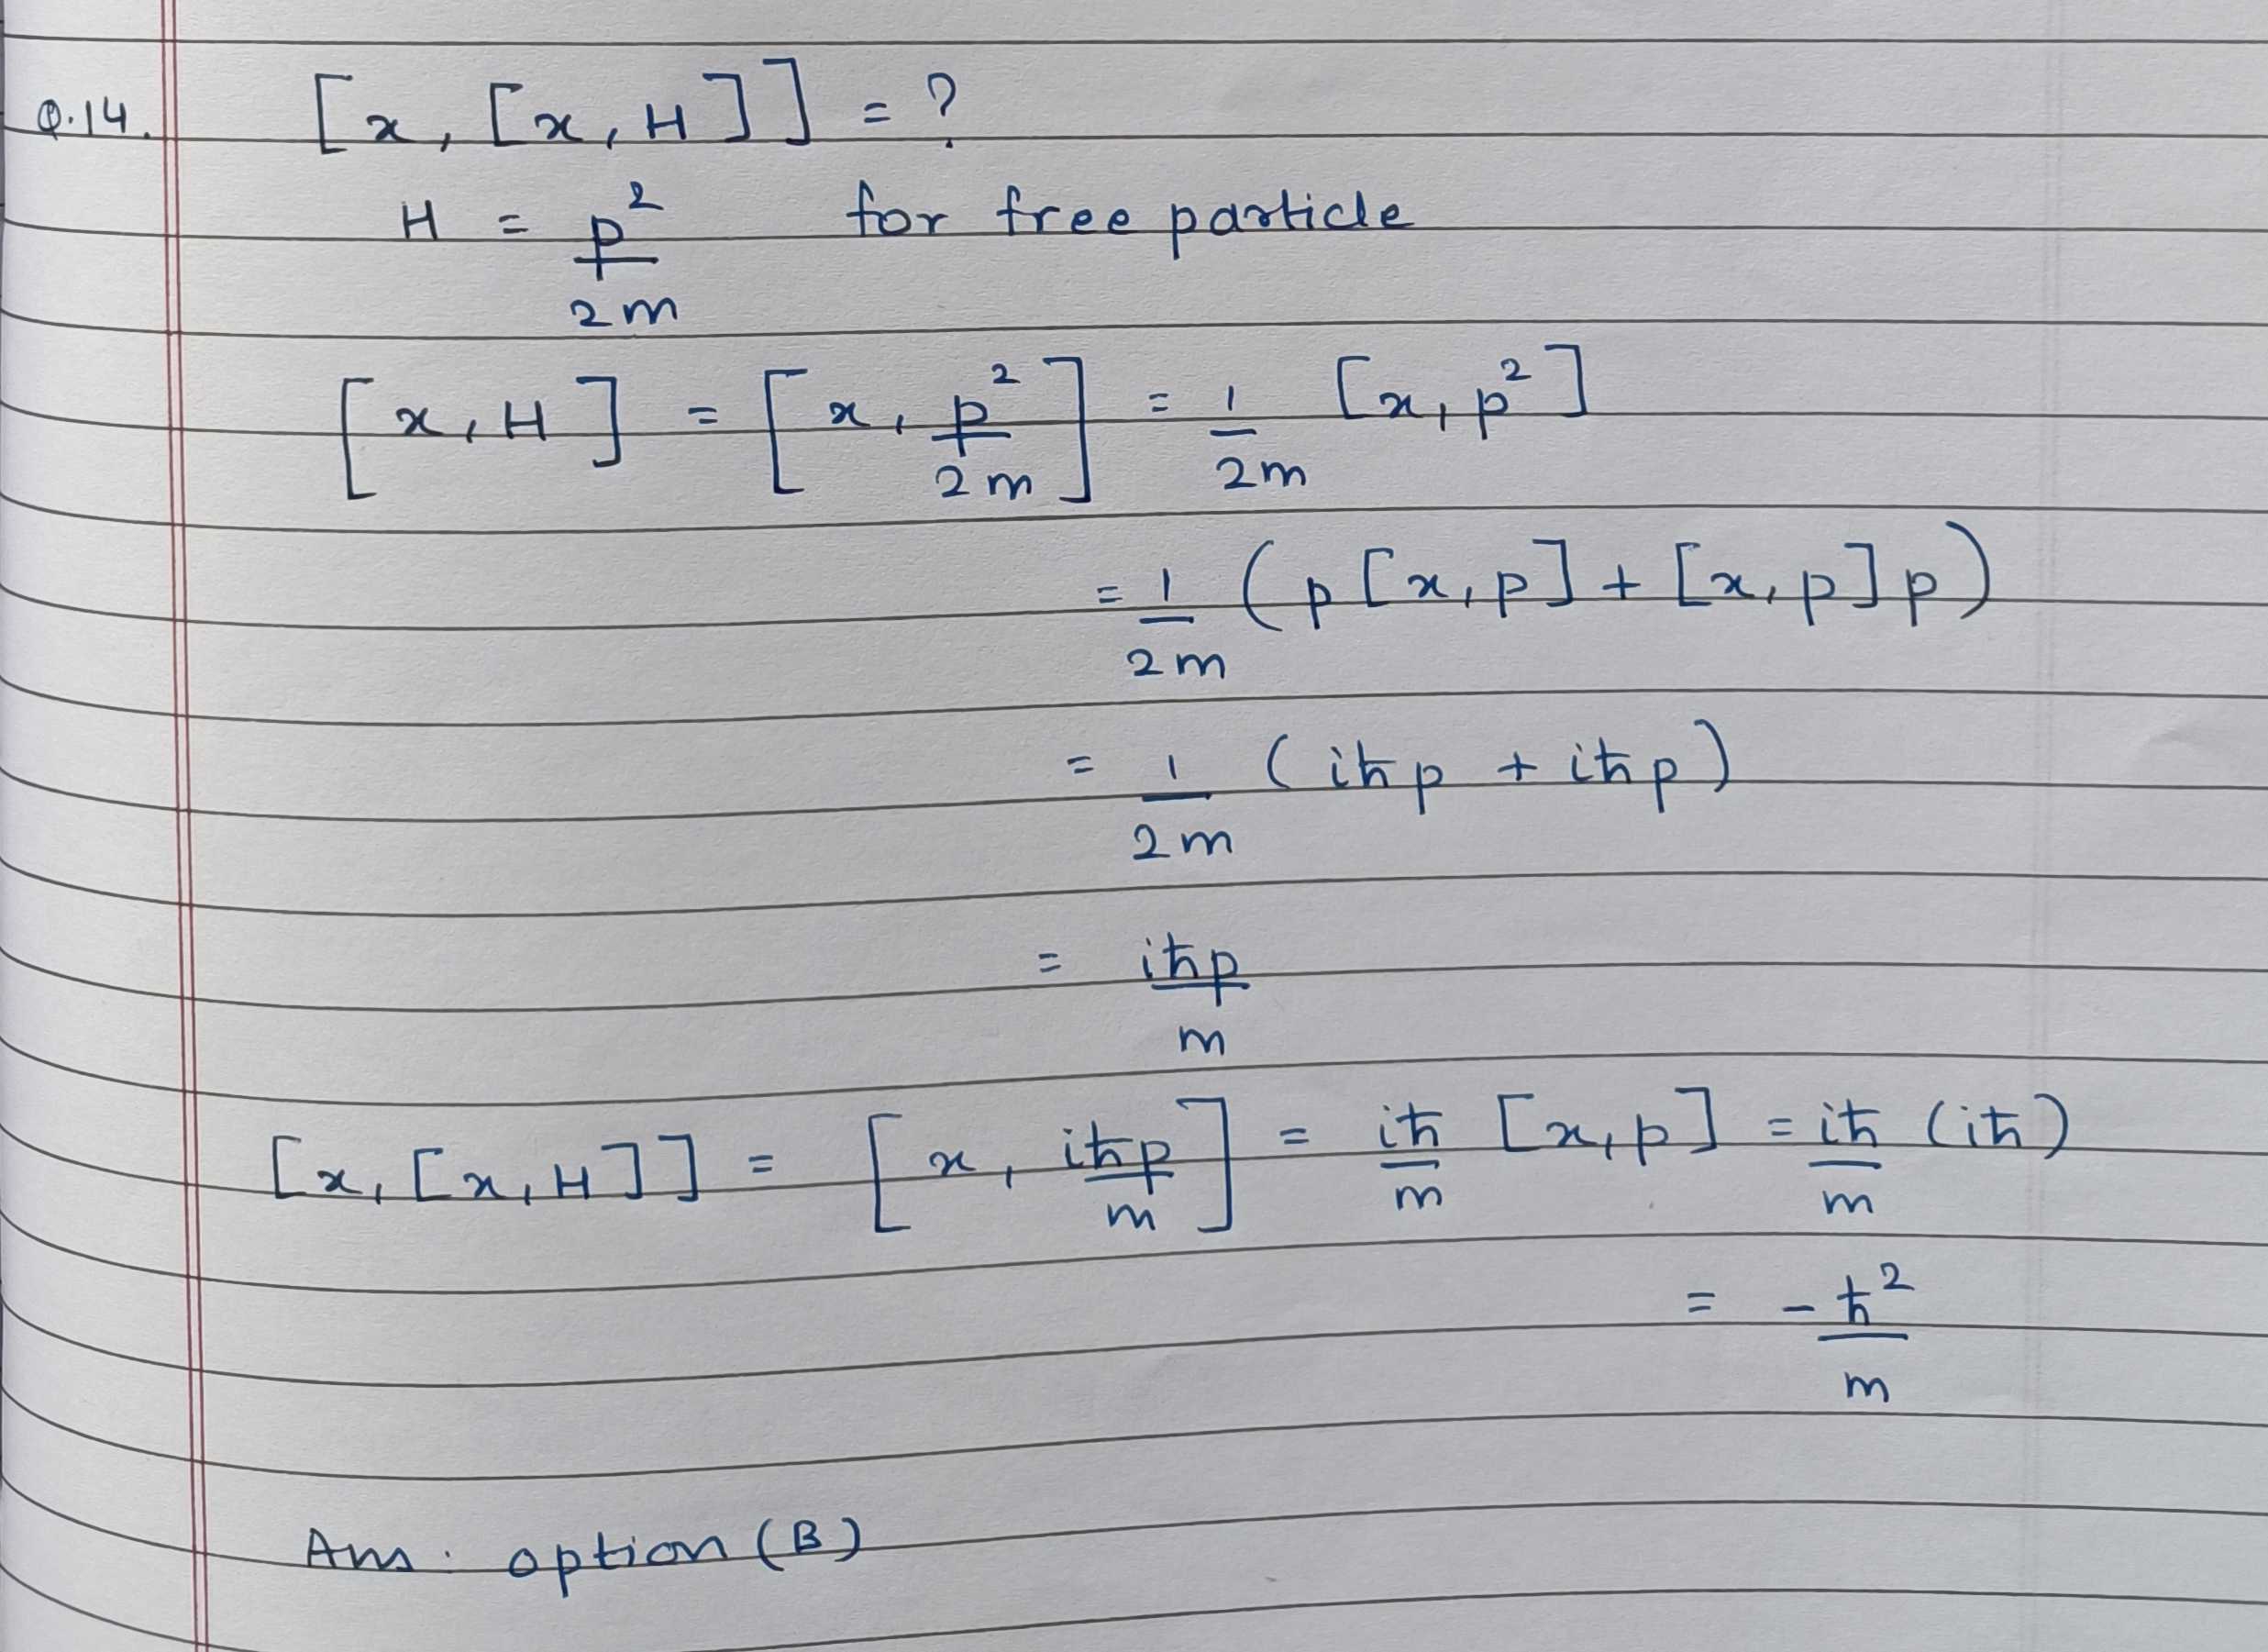 Q.14. [x, [x, H]] = ?
H = p²/2m for free particle
[x, H] = [x, p²/2m] = 1/2m [x, p²]
= 1/2m (p[x, p] + [x, p]p)
= 1/2m (iħp + iħp)
= iħp/m
[x, [x, H]] = [x, iħp/m] = iħ/m [x, p] = iħ/m (iħ)
= -ħ²/m
Ans. option (B)